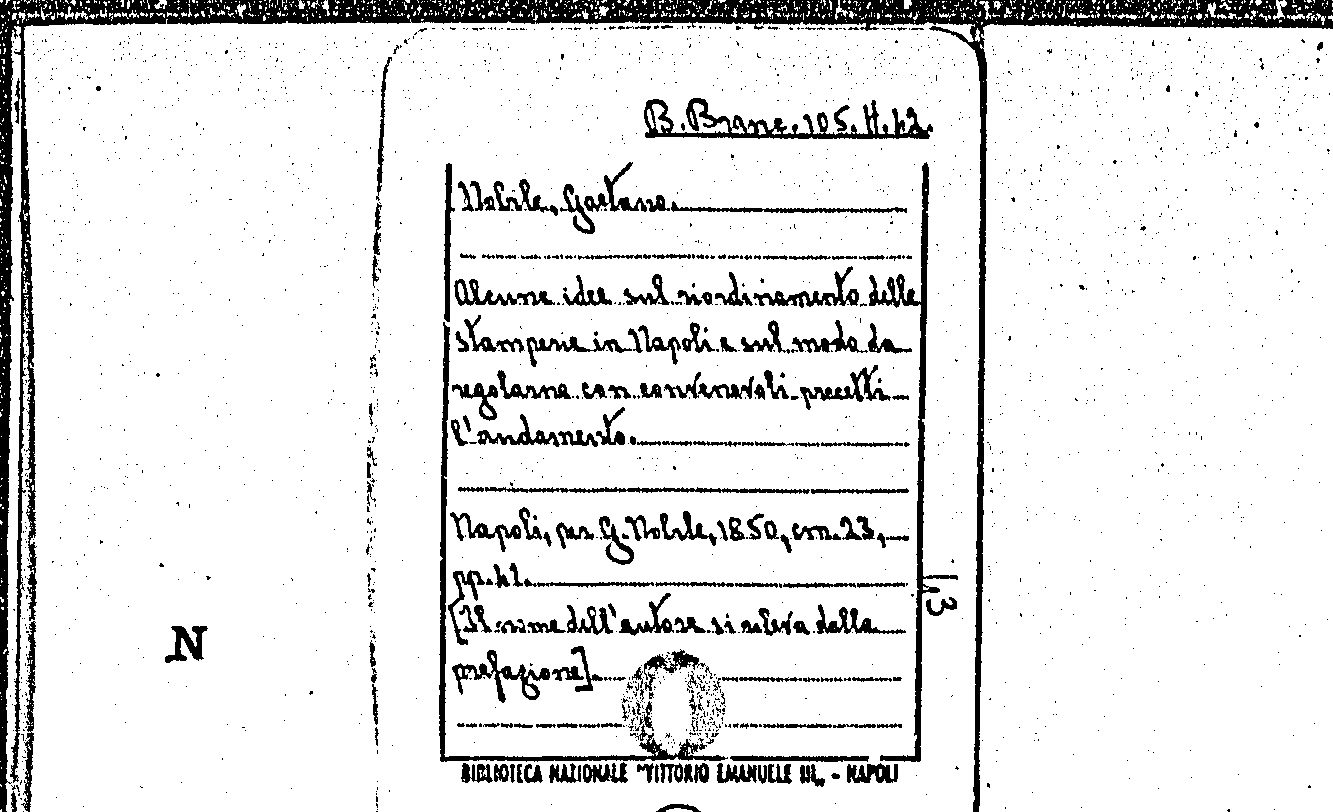 B. Branc. 105. H. 42.
Nobile, Gaetano.
Alcune idee sul riordinamento delle
stamperie in Napoli e sul modo da
regolarne con convenevoli precetti
l'andamento.
Napoli, per G. Nobile, 1850, cm. 23,
pp. 42.
[Il nome dell'autore si rileva dalla
prefazione].
43
N
BIBLIOTECA NAZIONALE "VITTORIO EMANUELE III„ - NAPOLI